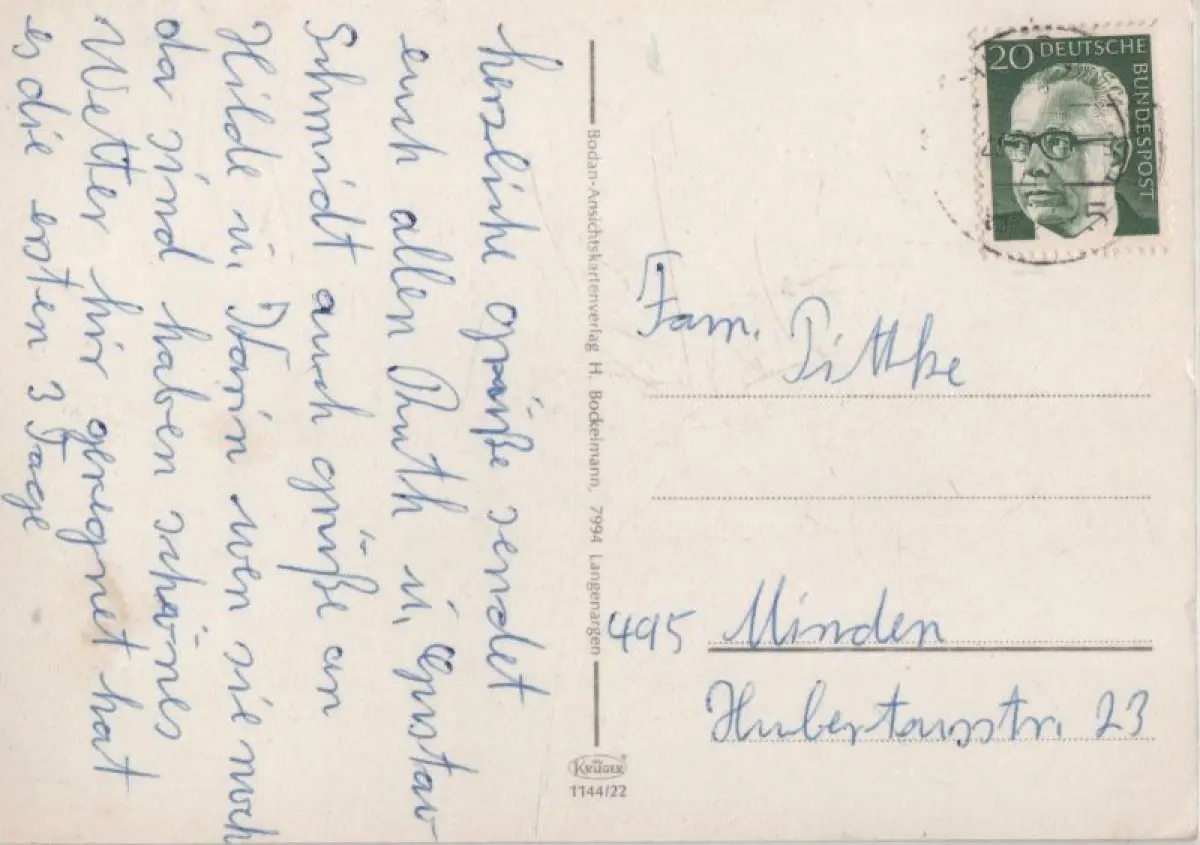 herzliche grüße sendet
euch allen Ruth u. Gustav
Schmidt auch grüße an
Hilde u. Karin wen sie noch
da sind haben schönes
Wetter hir geregnet hat
es die ersten 3 Tage
Bodan-Ansichtskartenverlag H. Bockelmann, 7994 Langenargen
KRÜGER
1144/22
20 DEUTSCHE
BUNDESPOST
Fam. Pittke
495 Minden
Hubertusstr. 23